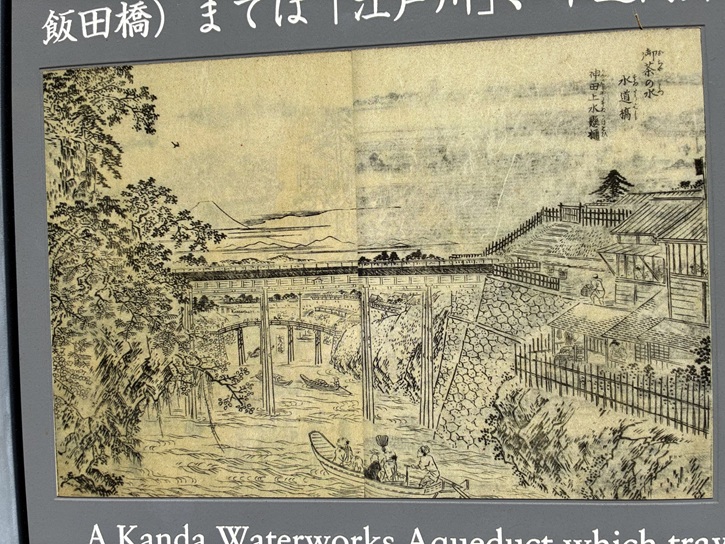 飯田橋）までは「江戸川」、
御茶の水
水道橋
神田上水懸樋
A Kanda Waterworks Aqueduct which